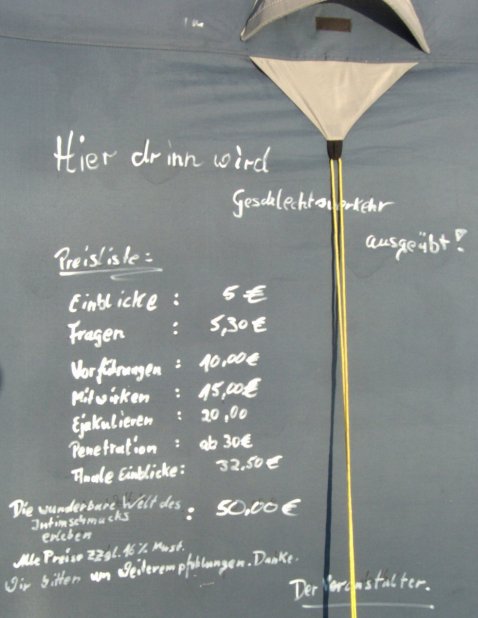 Hier drinn wird
Geschlechtsverkehr
ausgeübt!
Preisliste:
Einblicke : 5 €
Fragen : 5,30 €
Vorführungen : 10,00 €
Mitwirken : 15,00 €
Ejakulieren : 20,00
Penetration : ab 30 €
Finale Einblicke: 32.50 €
Die wunderbare Welt des
Intimschmucks : 50,00 €
erleben
Alle Preise zzgl. 16% Mwst.
Wir bitten um Weiterempfehlungen. Danke.
Der Veranstalter.